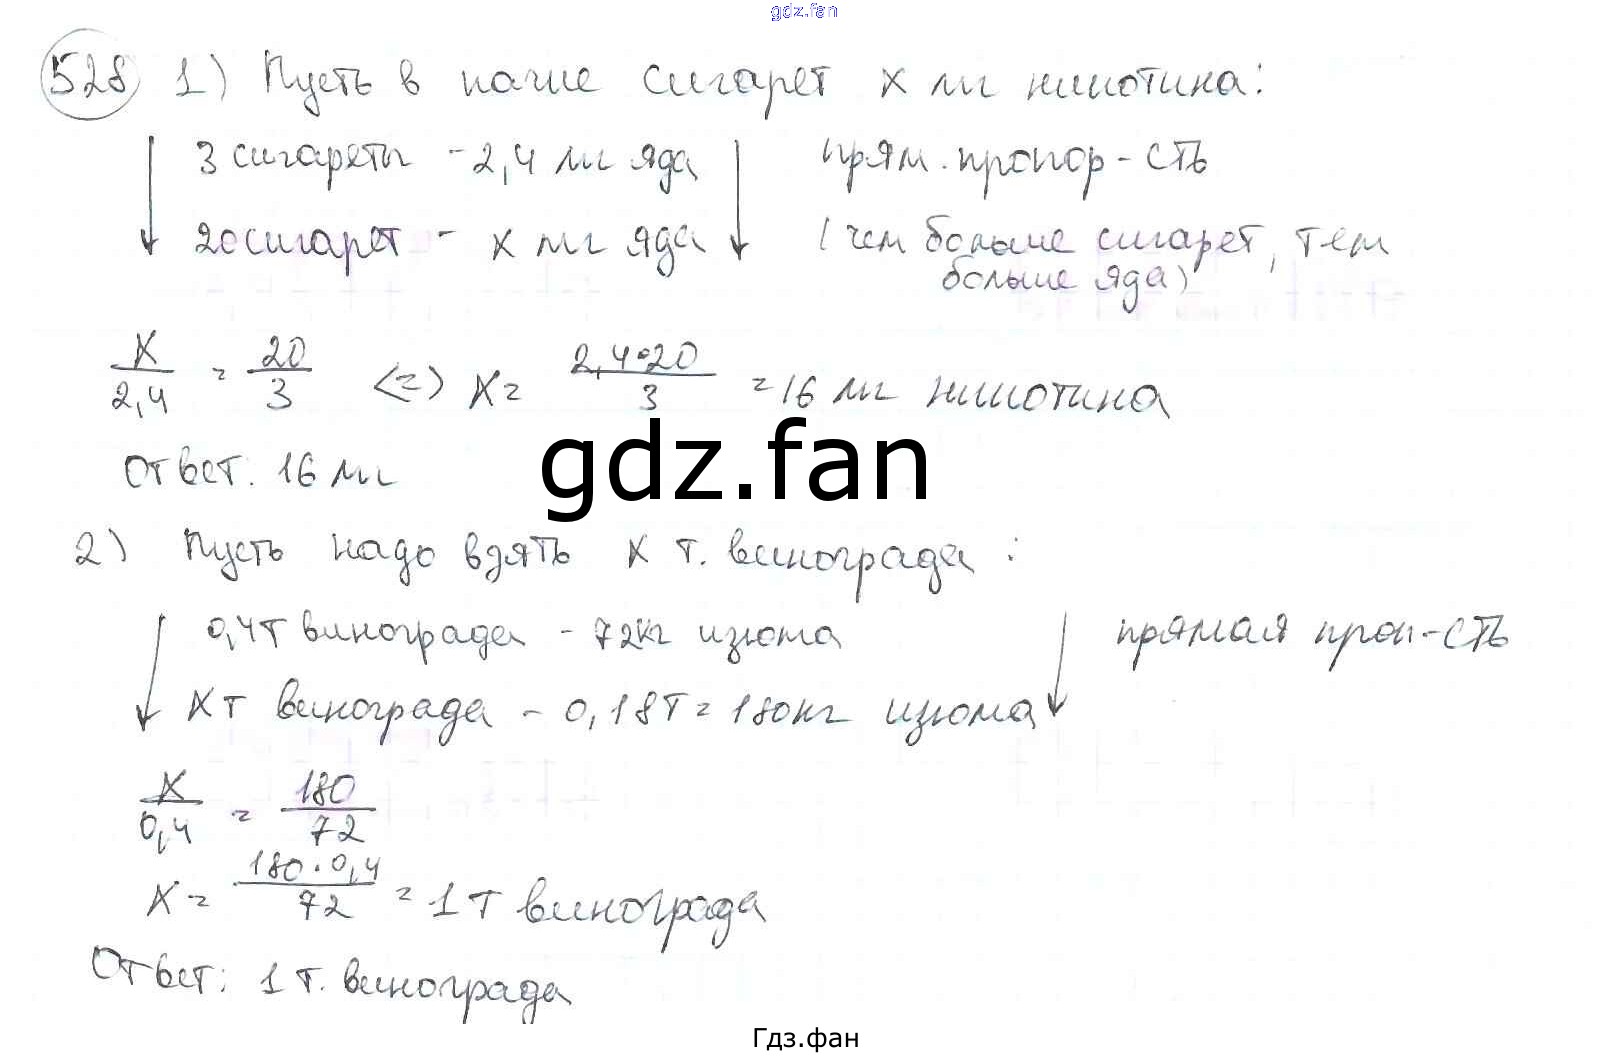 gdz.fan
528 1) Пусть в пачке сигарет x мг никотина:
3 сигареты - 2,4 мг яда прям. пропор-сть
20 сигарет - x мг яда (чем больше сигарет, тем
больше яда)
x/2,4 = 20/3 <=> x = 2,4•20/3 = 16 мг никотина
Ответ: 16 мг
gdz.fan
2) Пусть надо взять x т. винограда:
0,4т винограда - 72кг изюма прямая проп-сть
x т винограда - 0,18т = 180кг изюма
x/0,4 = 180/72
x = 180·0,4/72 = 1 т винограда
Ответ: 1 т. винограда
Гдз.фан